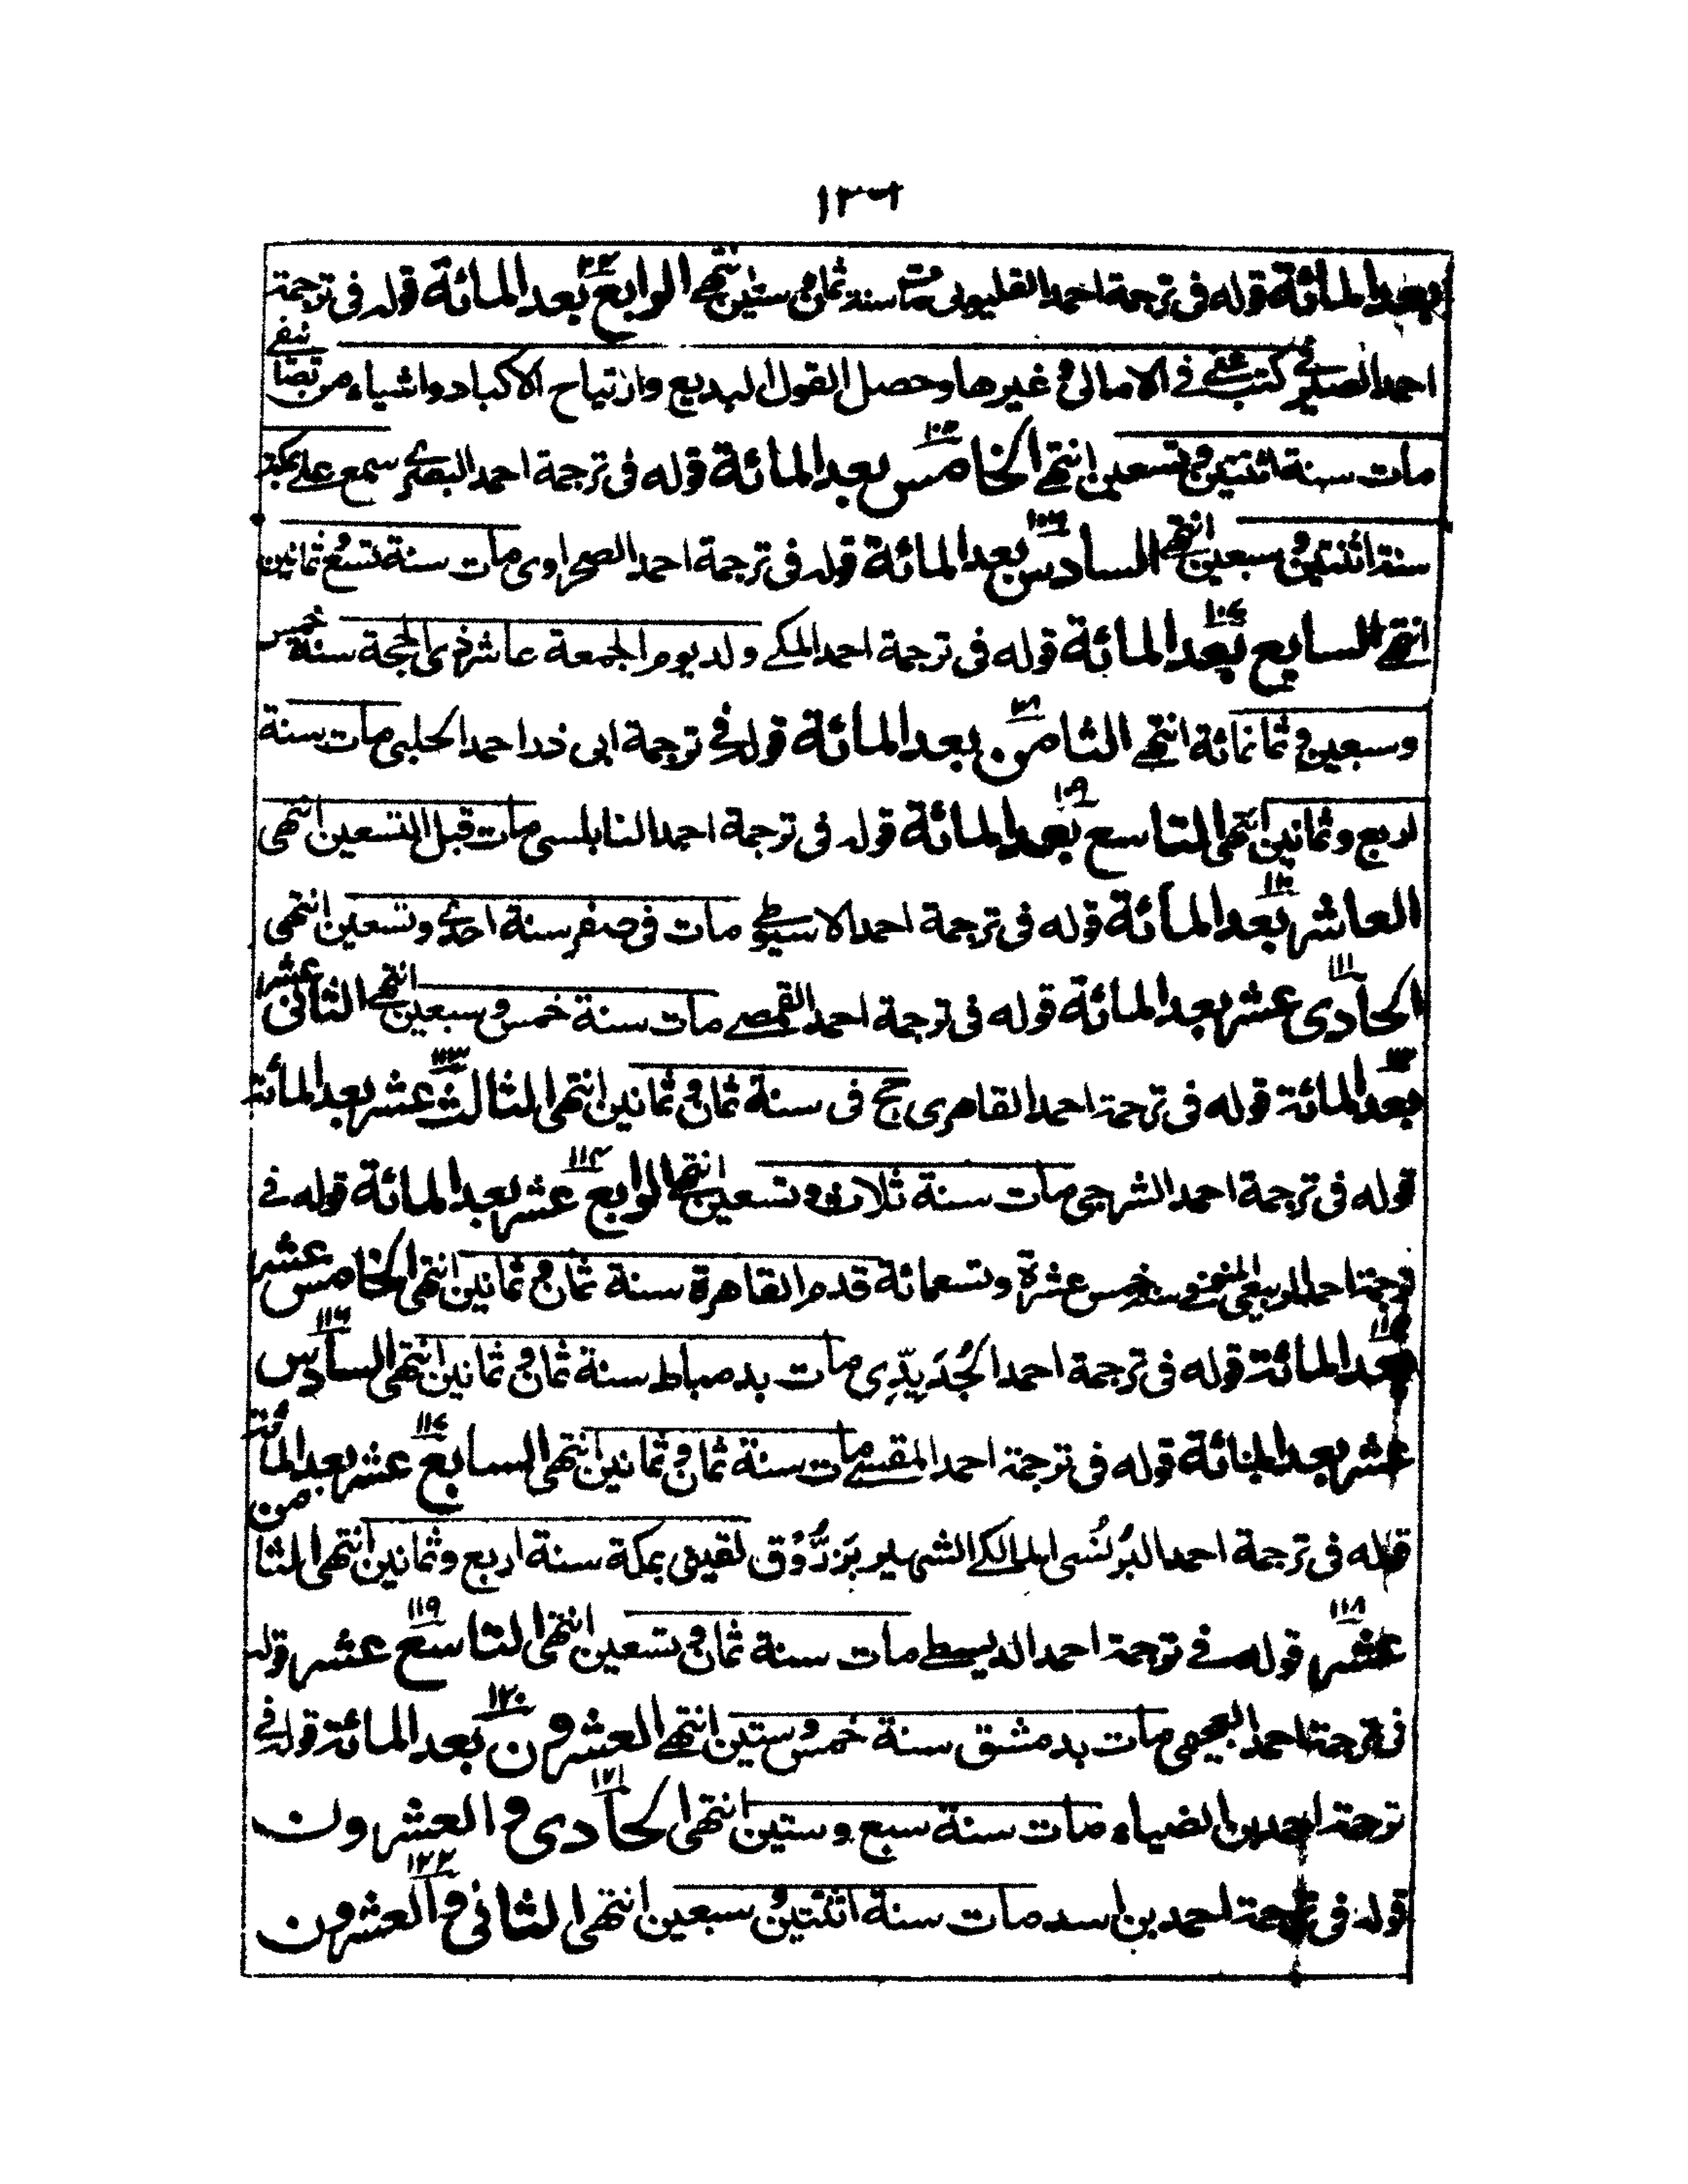 ١٣٦
بعد المائة قوله فى ترجمة احمد القليوبى مات سنة ثمان و ستين انتهى الرابع بعد المائة قوله فى ترجمة
احمد كتب عنى فى الامالى و غيرها وحصل القول البديع وارتياح الاكباد واشياء من تصانيفى
مات سنة اثنتين و تسعين انتهى الخامس ١٠٥ بعد المائة قوله فى ترجمة احمد البصرى سمع على بمكة
سنة اثنتين و سبعين انتهى السادس ١٠٦ بعد المائة قوله فى ترجمة احمد الصحراوى مات سنة تسع و ثمانين
انتهى السابع ١٠٧ بعد المائة قوله فى ترجمة احمد المكى ولد يوم الجمعة عاشر ذى الحجة سنة خمس
وسبعين و ثمانمائة انتهى الثامن بعد المائة قوله فى ترجمة ابى ذر احمد الحلبى مات سنة
اربع وثمانين انتهى التاسع ١٠٩ بعد المائة قوله فى ترجمة احمد النابلسى مات قبل التسعين انتهى
العاشر ١١٠ بعد المائة قوله فى ترجمة احمد الاسيوطى مات فى صفر سنة احدى وتسعين انتهى
الحادى ١١١ عشر بعد المائة قوله فى ترجمة احمد القمصى مات سنة خمس و سبعين انتهى الثانى عشر
بعد المائة قوله فى ترجمة احمد القاهرى حج فى سنة ثمان و ثمانين انتهى الثالث ١١٣ عشر بعد المائة
قوله فى ترجمة احمد الشرجى مات سنة ثلاث و تسعين انتهى الرابع ١١٤ عشر بعد المائة قوله فى
ترجمة احمد سنة خمس عشرة وتسعمائة قدم القاهرة سنة ثمان و ثمانين انتهى الخامس عشر
بعد المائة قوله فى ترجمة احمد الجُدَيدِّى مات بدمياط سنة ثمان و ثمانين انتهى السادس ١١٦
عشر بعد المائة قوله فى ترجمة احمد المقسى مات سنة ثمان و ثمانين انتهى السابع ١١٧ عشر بعد المائة
قوله فى ترجمة احمد البُرنُسى المالكى الشهير بزَرُّوق لقينى بمكة سنة اربع وثمانين انتهى الثامن
عشر ١١٨ قوله فى ترجمة احمد الديسطى مات سنة ثمان و تسعين انتهى التاسع ١١٩ عشر قوله
فى ترجمة احمد مات بدمشق سنة خمس و ستين انتهى العشرون ١٢٠ بعد المائة قوله فى
ترجمة احمد بن الضياء مات سنة سبع وستين انتهى الحادى ١٢١ و العشرون
قوله فى ترجمة احمد بن اسد مات سنة اثنتين و سبعين انتهى الثانى ١٢٢ و العشرون